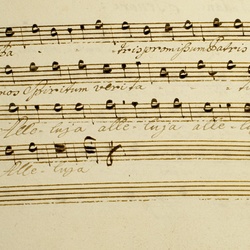 ba - - tris promissum Patris
mos Spiritum verita - - ti
Alle - luja alle - luja alle - l
Alle - luja